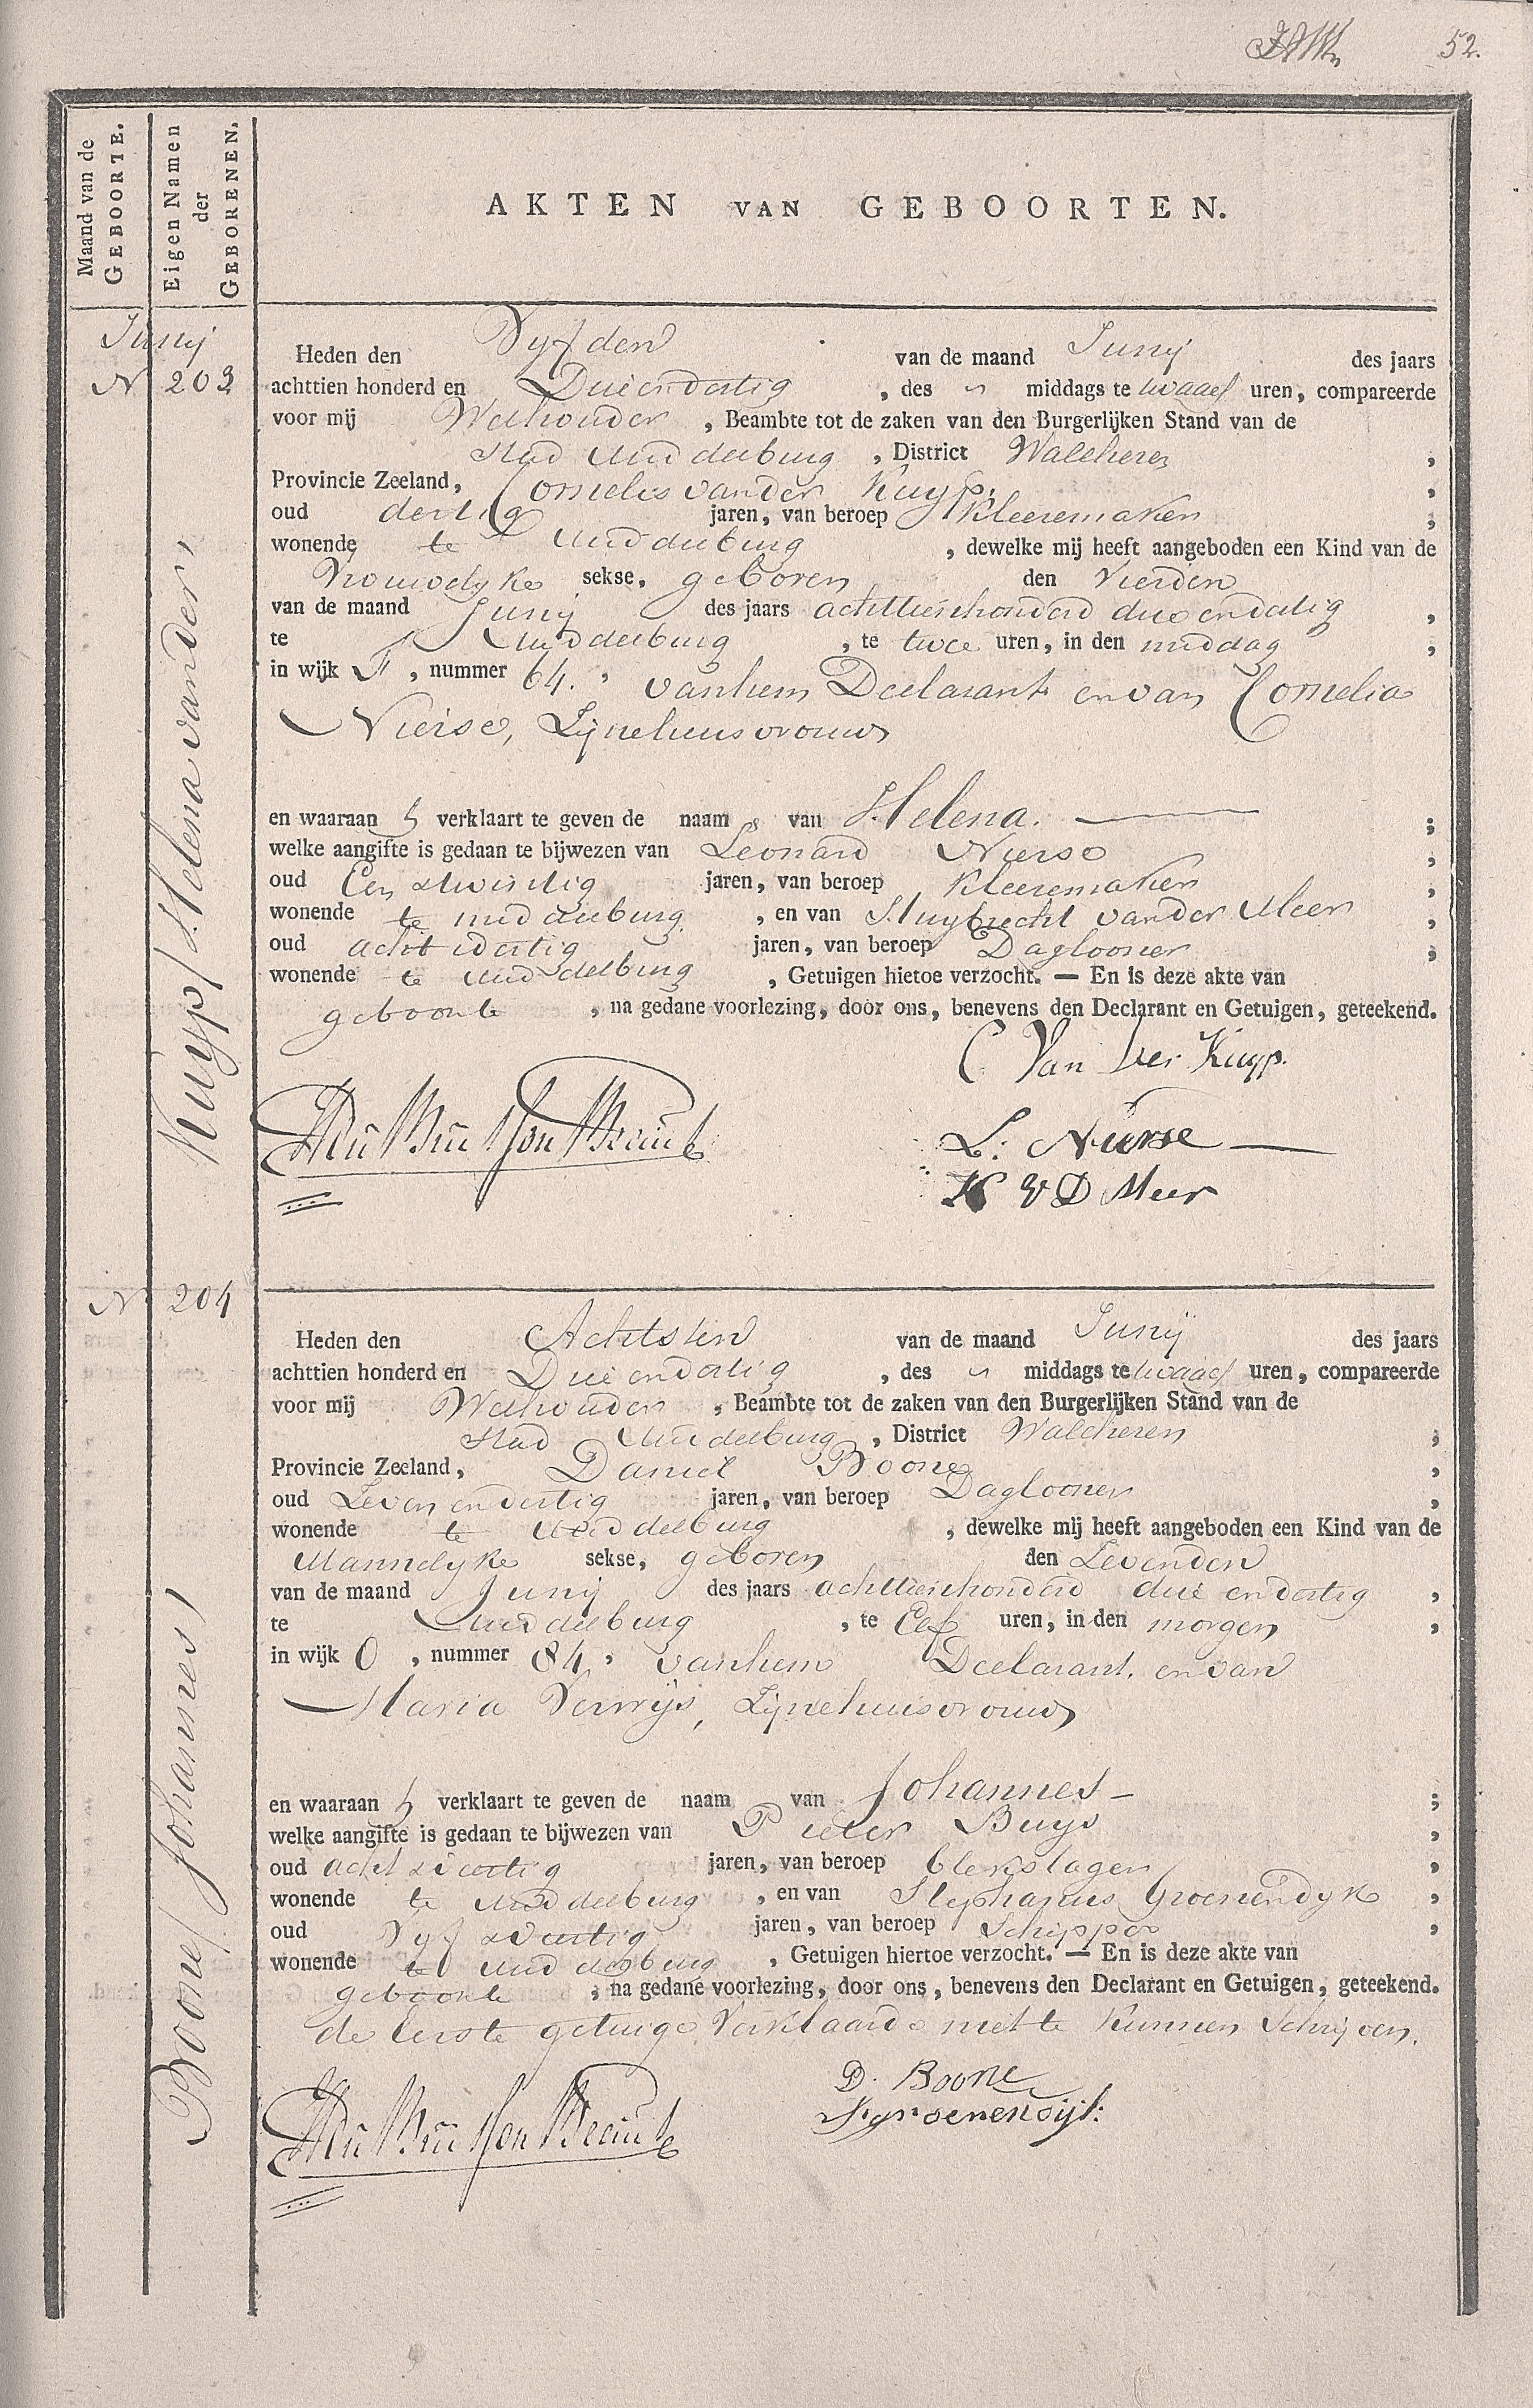 52.
Maand van de
GEBOORTE.
Eigen Namen
der
GEBORENEN.
AKTEN VAN GEBOORTEN.
Junij
N 203
Kuyp / Helena vander /
Heden den Vyfden van de maand Junij des jaars
achttien honderd en Drieendertig , des middags te twaalf uren, compareerde
voor mij Wethouder , Beambte tot de zaken van den Burgerlijken Stand van de
Stad Middelburg , District Walcheren ,
Provincie Zeeland, Cornelis vander Kuyp. ,
oud dertig jaren, van beroep Kleeremaker ,
wonende te Middelburg , dewelke mij heeft aangeboden een Kind van de
Vrouwelyke sekse, geboren den Vierden
van de maand Junij des jaars achttienhonderd drie endertig ,
te Middelburg , te twee uren, in den middag ,
in wijk F , nummer 64. , van hem Declarant en van Cornelia
Nierse, Zijne huisvrouw
en waaraan hij verklaart te geven de naam van Helena. ;
welke aangifte is gedaan te bijwezen van Leonard Nierse ,
oud Een & twintig jaren, van beroep Kleeremaker ,
wonende te middelburg , en van Huybrecht vander Meer ,
oud acht & dertig jaren, van beroep Daglooner ,
wonende te Middelburg , Getuigen hietoe verzocht. — En is deze akte van
geboorte , na gedane voorlezing, door ons, benevens den Declarant en Getuigen, geteekend.
C Van der Kuyp.
L: Nierse
H V D Meer
N 204
Boone / Johannes /
Heden den Achtsten van de maand Junij des jaars
achttien honderd en Drie endertig , des middags te twaalf uren, compareerde
voor mij Wethouder , Beambte tot de zaken van den Burgerlijken Stand van de
Stad Middelburg , District Walcheren ,
Provincie Zeeland, Daniel Boone ,
oud Zeven en dertig jaren, van beroep Daglooner ,
wonende te Middelburg , dewelke mij heeft aangeboden een Kind van de
Mannelyke sekse, geboren den Zevenden
van de maand Junij des jaars achttienhonderd drie endertig ,
te Middelburg , te Elf uren, in den morgen ,
in wijk O , nummer 84 , van hem Declarant, en van
Maria Verwijs, Zijne huisvrouw
en waaraan hij verklaart te geven de naam van Johannes ;
welke aangifte is gedaan te bijwezen van Pieter Buys ,
oud acht & veertig jaren, van beroep blekslager ,
wonende te Middelburg , en van Stephanus Groenendyk ,
oud Vyf & veertig jaren, van beroep Schipper ,
wonende te Middelburg , Getuigen hiertoe verzocht. — En is deze akte van
geboorte , na gedane voorlezing, door ons, benevens den Declarant en Getuigen, geteekend.
de eerste getuige verklaarde niet te kunnen Schrijven.
D. Boone
S. groenendijk